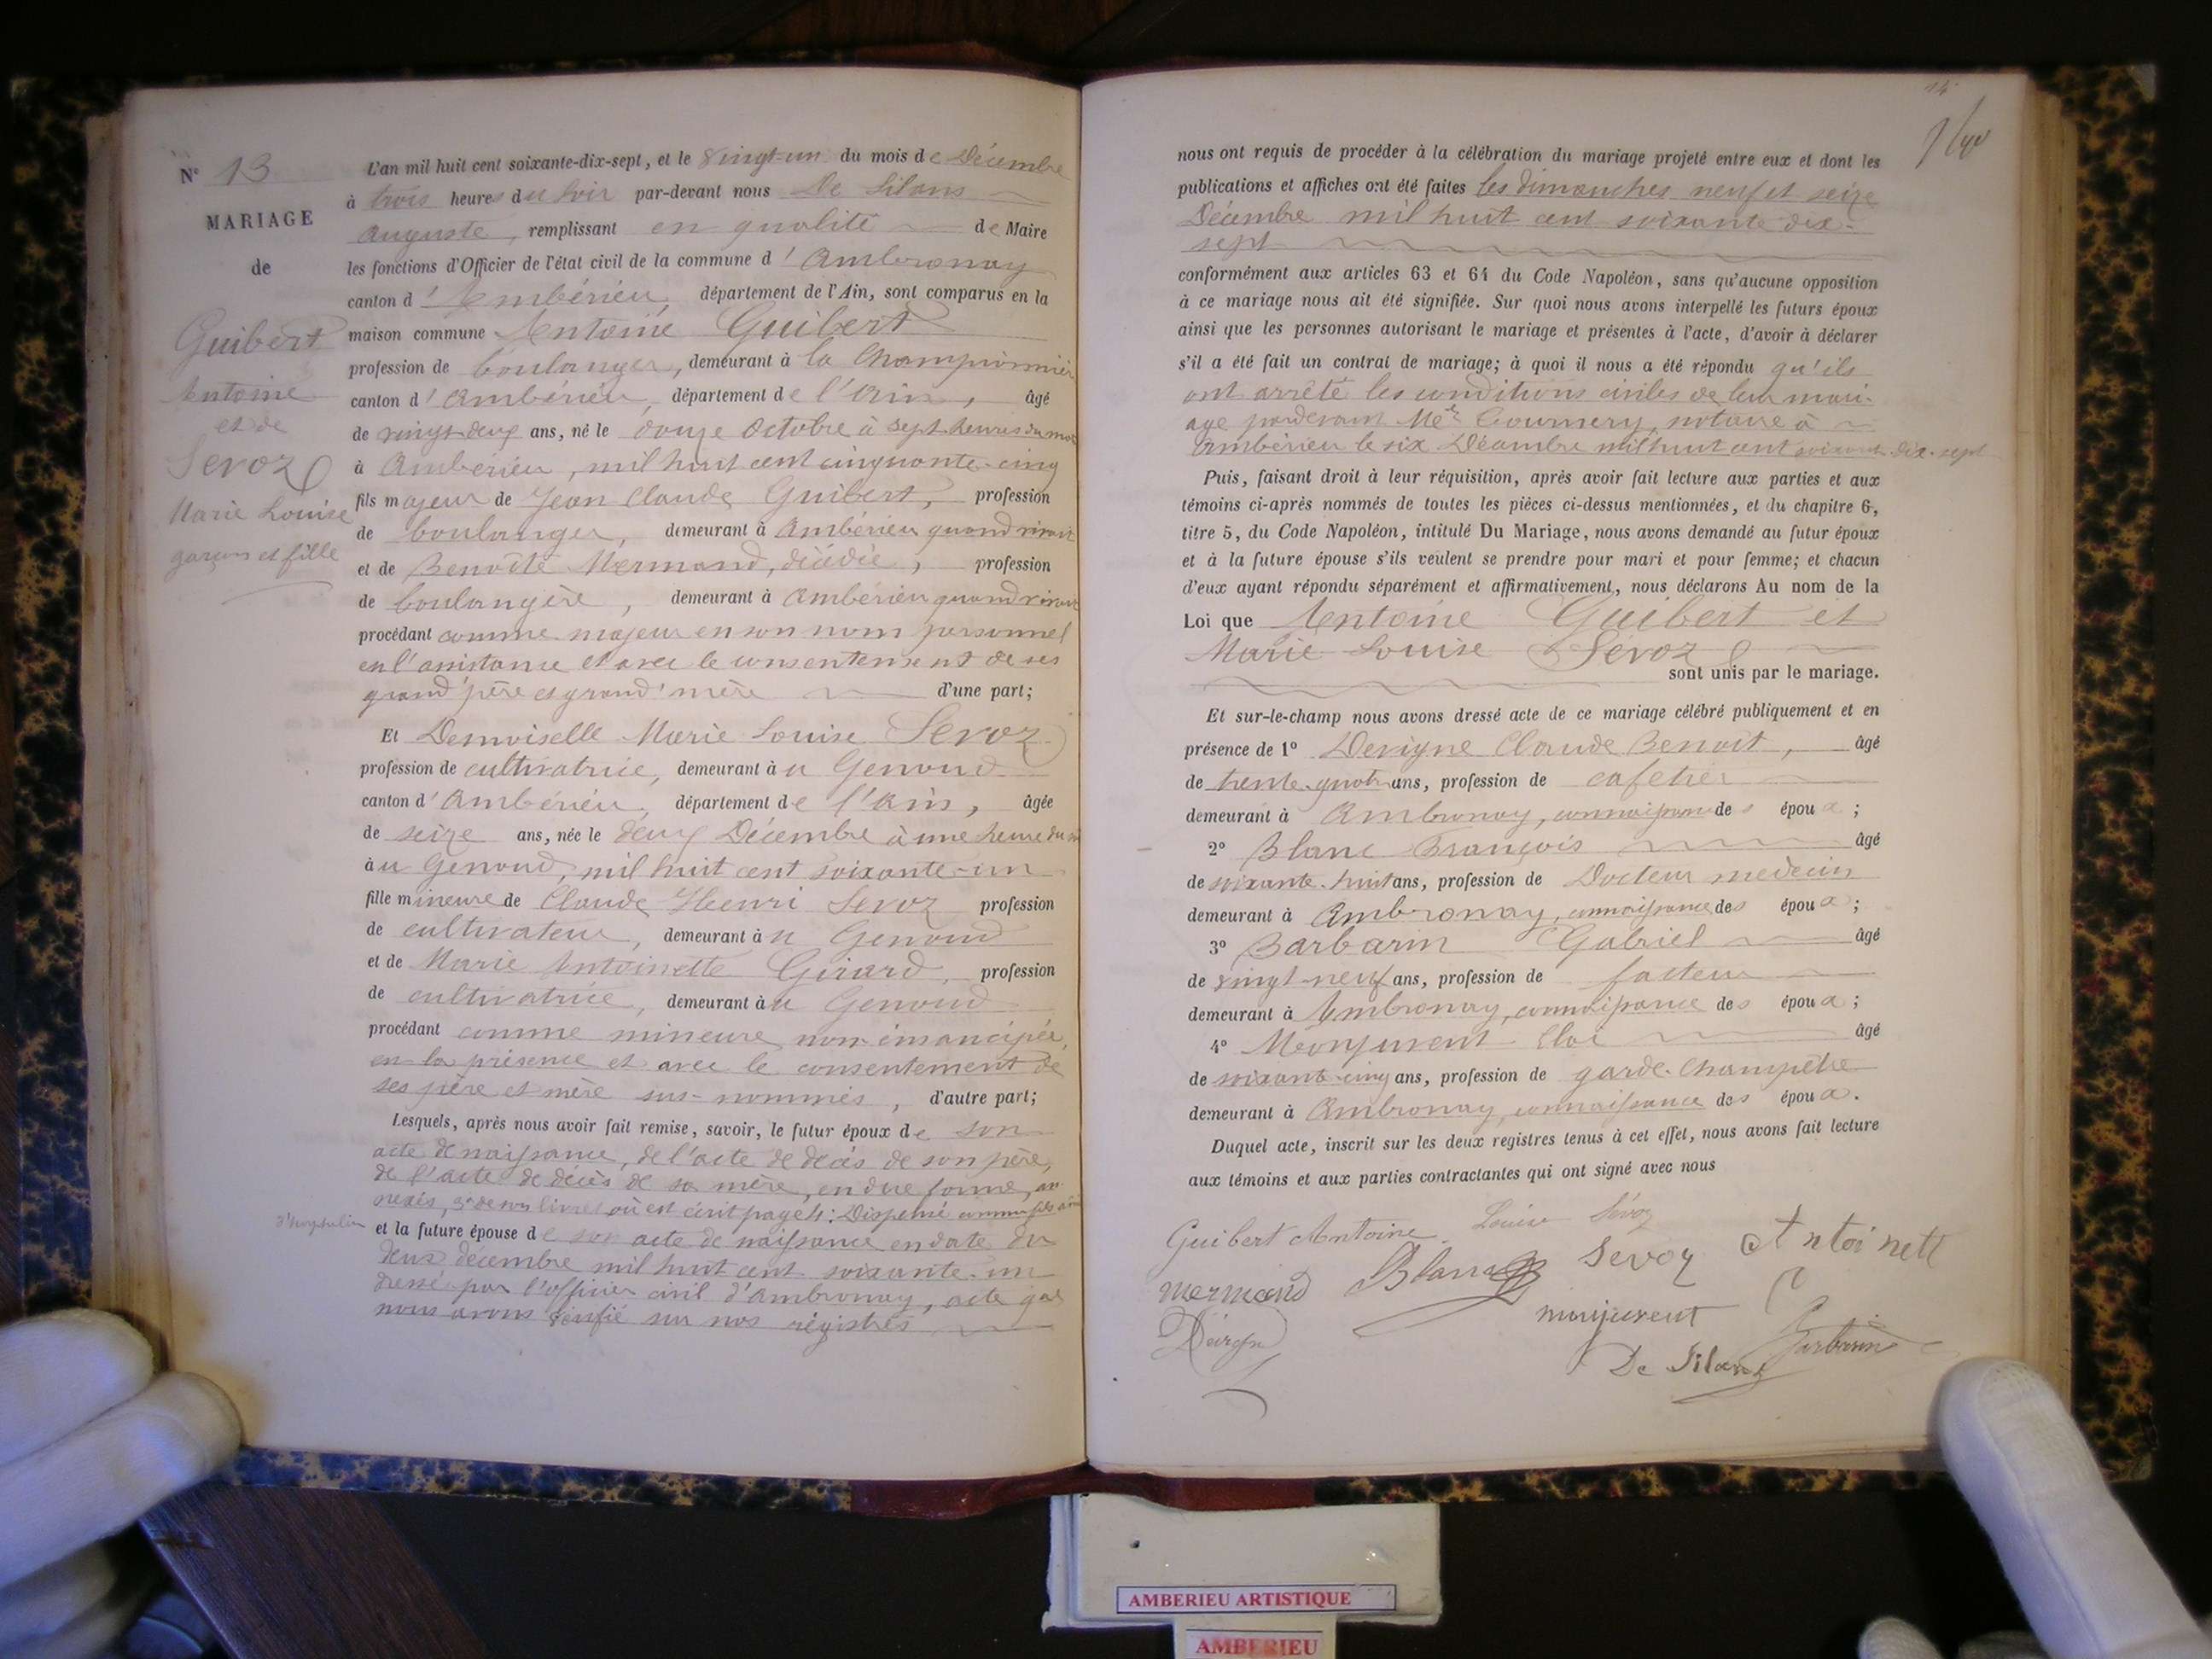 N° 13
MARIAGE
de
Guibert
Antoine
et de
Sevoz
Marie Louise
garçon et fille
L'an mil huit cent soixante-dix-sept, et le vingt-un du mois de Décembre
à trois heures du soir par-devant nous De Silans
Auguste, remplissant en qualité de Maire
les fonctions d'Officier de l'état civil de la commune d'Ambronay
canton d'Ambérieu, département de l'Ain, sont comparus en la
maison commune Antoine Guibert
profession de boulanger, demeurant à la Championnière
canton d'Ambérieu, département de l'Ain, âgé
de vingt-deux ans, né le douze Octobre à sept heures du
à Ambérieu, mil huit cent cinquante-cinq
fils majeur de Jean Claude Guibert, profession
de boulanger, demeurant à Ambérieu quand vivait
et de Benoîte Mermand, décédée, profession
de boulangère, demeurant à Ambérieu quand vivait
procédant comme majeur en son nom personnel
en l'assistance et avec le consentement de ses
grand'père et grand'mère d'une part;
Et Demoiselle Marie Louise Sevoz
profession de cultivatrice, demeurant à u Genoud
canton d'Ambérieu, département de l'Ain, âgée
de seize ans, née le deux Décembre à une heure du
à u Genoud, mil huit cent soixante-un
fille mineure de Claude Henri Sevoz profession
de cultivateur, demeurant à u Genoud
et de Marie Antoinette Girard, profession
de cultivatrice, demeurant à u Genoud
procédant comme mineure non-émancipée,
en la présence et avec le consentement de
ses père et mère sus-nommés, d'autre part;
Lesquels, après nous avoir fait remise, savoir, le futur époux de son
acte de naissance, de l'acte de décès de son père,
de l'acte de décès de sa mère, en due forme, an-
nexés, 3° de son livret où est écrit page 4: Dispensé comme fils aîné
d'orphelins
et la future épouse de son acte de naissance en date du
deux décembre mil huit cent soixante-un
dressé par l'officier civil d'Ambronay, acte que
nous avons vérifié sur nos régistres
14
nous ont requis de procéder à la célébration du mariage projeté entre eux et dont les
publications et affiches ont été faites les dimanches neuf et seize
Décembre mil huit cent soixante-dix-
sept
conformément aux articles 63 et 64 du Code Napoléon, sans qu'aucune opposition
à ce mariage nous ait été signifiée. Sur quoi nous avons interpellé les futurs époux
ainsi que les personnes autorisant le mariage et présentes à l'acte, d'avoir à déclarer
s'il a été fait un contrat de mariage; à quoi il nous a été répondu qu'ils
ont arrêté les conditions civiles de leur mari-
age pardevant Me Goumery, notaire à
Ambérieu le six Décembre mil huit cent soixante-dix-sept
Puis, faisant droit à leur réquisition, après avoir fait lecture aux parties et aux
témoins ci-après nommés de toutes les pièces ci-dessus mentionnées, et du chapitre 6,
titre 5, du Code Napoléon, intitulé Du Mariage, nous avons demandé au futur époux
et à la future épouse s'ils veulent se prendre pour mari et pour femme; et chacun
d'eux ayant répondu séparément et affirmativement, nous déclarons Au nom de la
Loi que Antoine Guibert et
Marie Louise Sevoz
sont unis par le mariage.
Et sur-le-champ nous avons dressé acte de ce mariage célébré publiquement et en
présence de 1° Devigne Claude Benoît, âgé
de trente-quatre ans, profession de cafetier
demeurant à Ambronay, connaissance des époux;
2° Blanc François âgé
de soixante-huit ans, profession de Docteur médecin
demeurant à Ambronay, connaissance des époux;
3° Barbarin Gabriel âgé
de vingt-neuf ans, profession de facteur
demeurant à Ambronay, connaissance des époux;
4° Monjuvent Eloi âgé
de soixante-cinq ans, profession de garde-champêtre
demeurant à Ambronay, connaissance des époux.
Duquel acte, inscrit sur les deux registres tenus à cet effet, nous avons fait lecture
aux témoins et aux parties contractantes qui ont signé avec nous
Guibert Antoine Louise Sévoz
Mermand Blanc Sevoz Antoinett
monjuvent
Barbarin
De Silans
AMBERIEU ARTISTIQUE
AMBERIEU